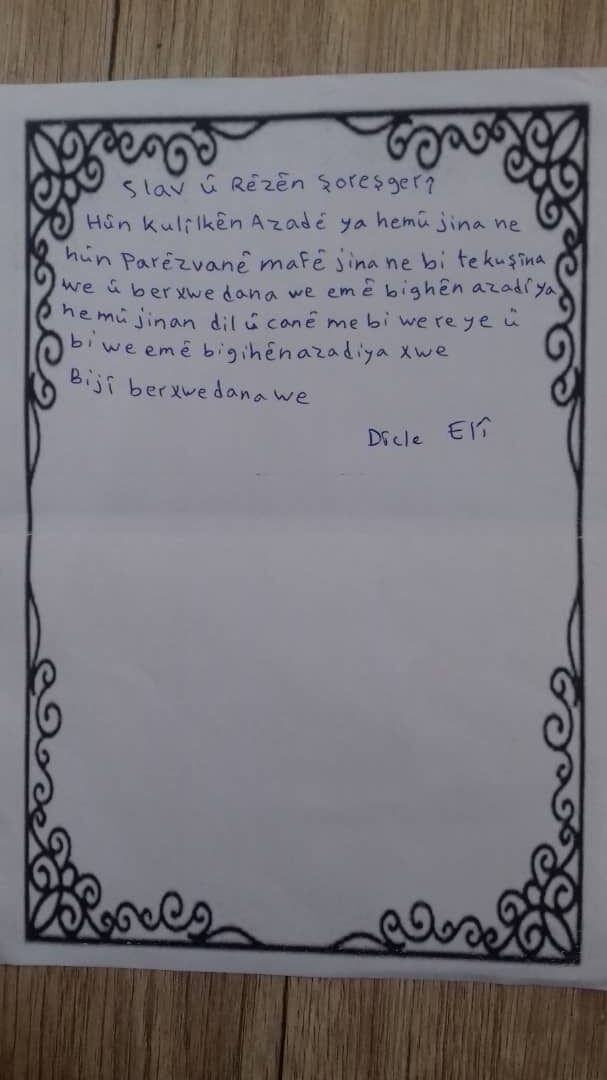 Slav û Rêzên Şoreşgerî
Hûn Kulîlkên Azadê ya hemû jina ne
hûn Parêzvanê mafê jina ne bi tekuşîna
we û berxwedana we emê bighên azadîya
hemû jinan dil û canê me bi we re ye û
bi we emê bigihên azadiya xwe
Bijî berxwedana we
Dîcle Elî